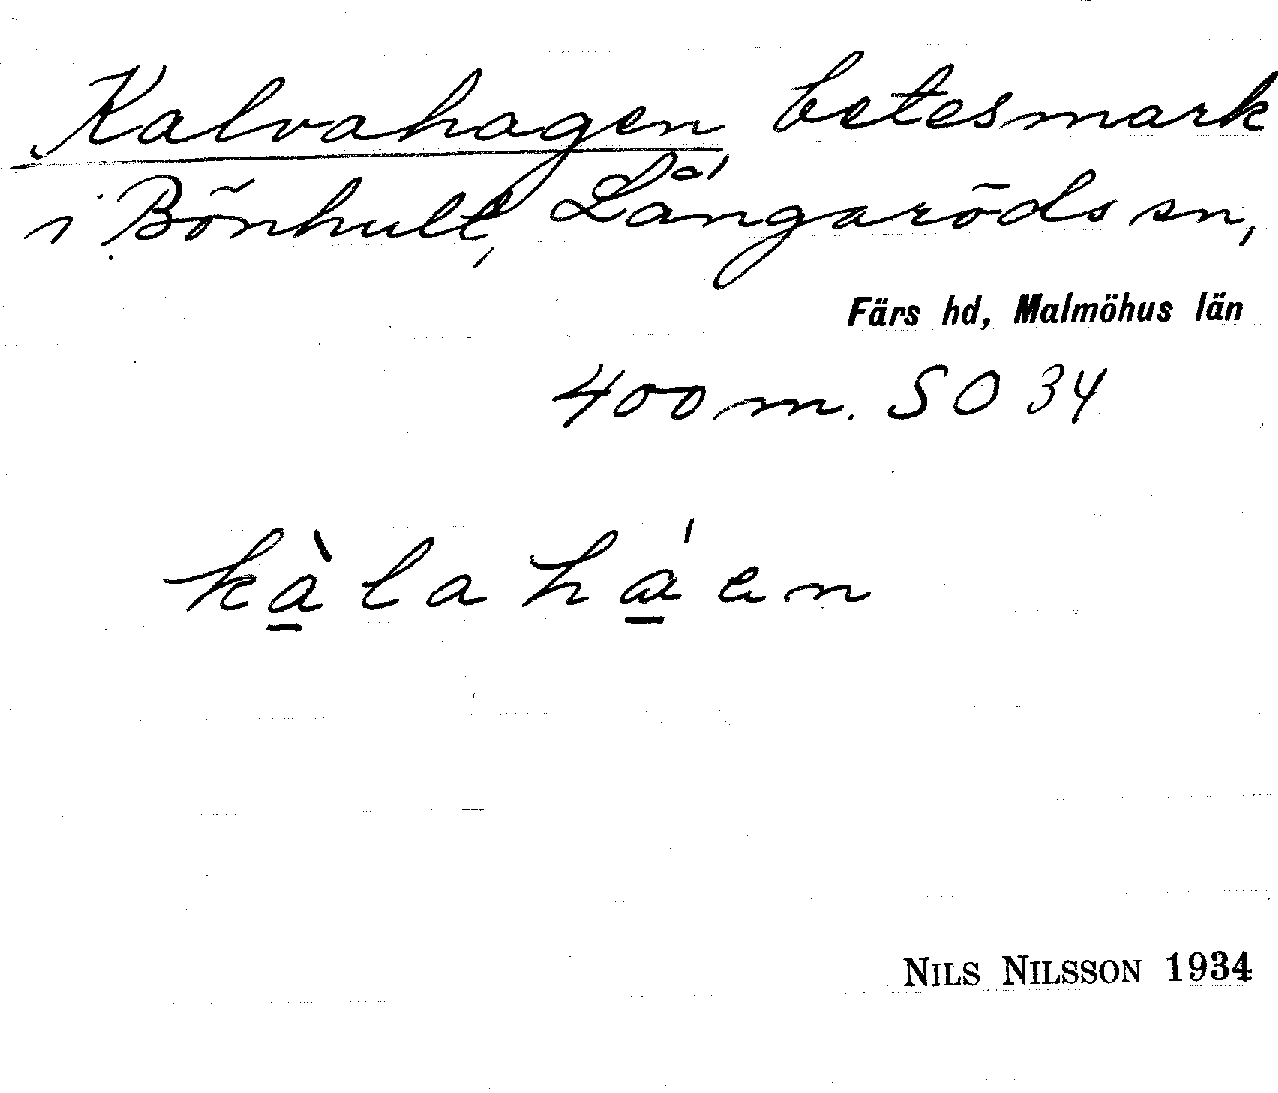 Kalvahagen betesmark
i Bönhult, Långaröds sn,
Färs hd, Malmöhus län
400 m. SO 34
kà̱lahá̱en
NILS NILSSON 1934